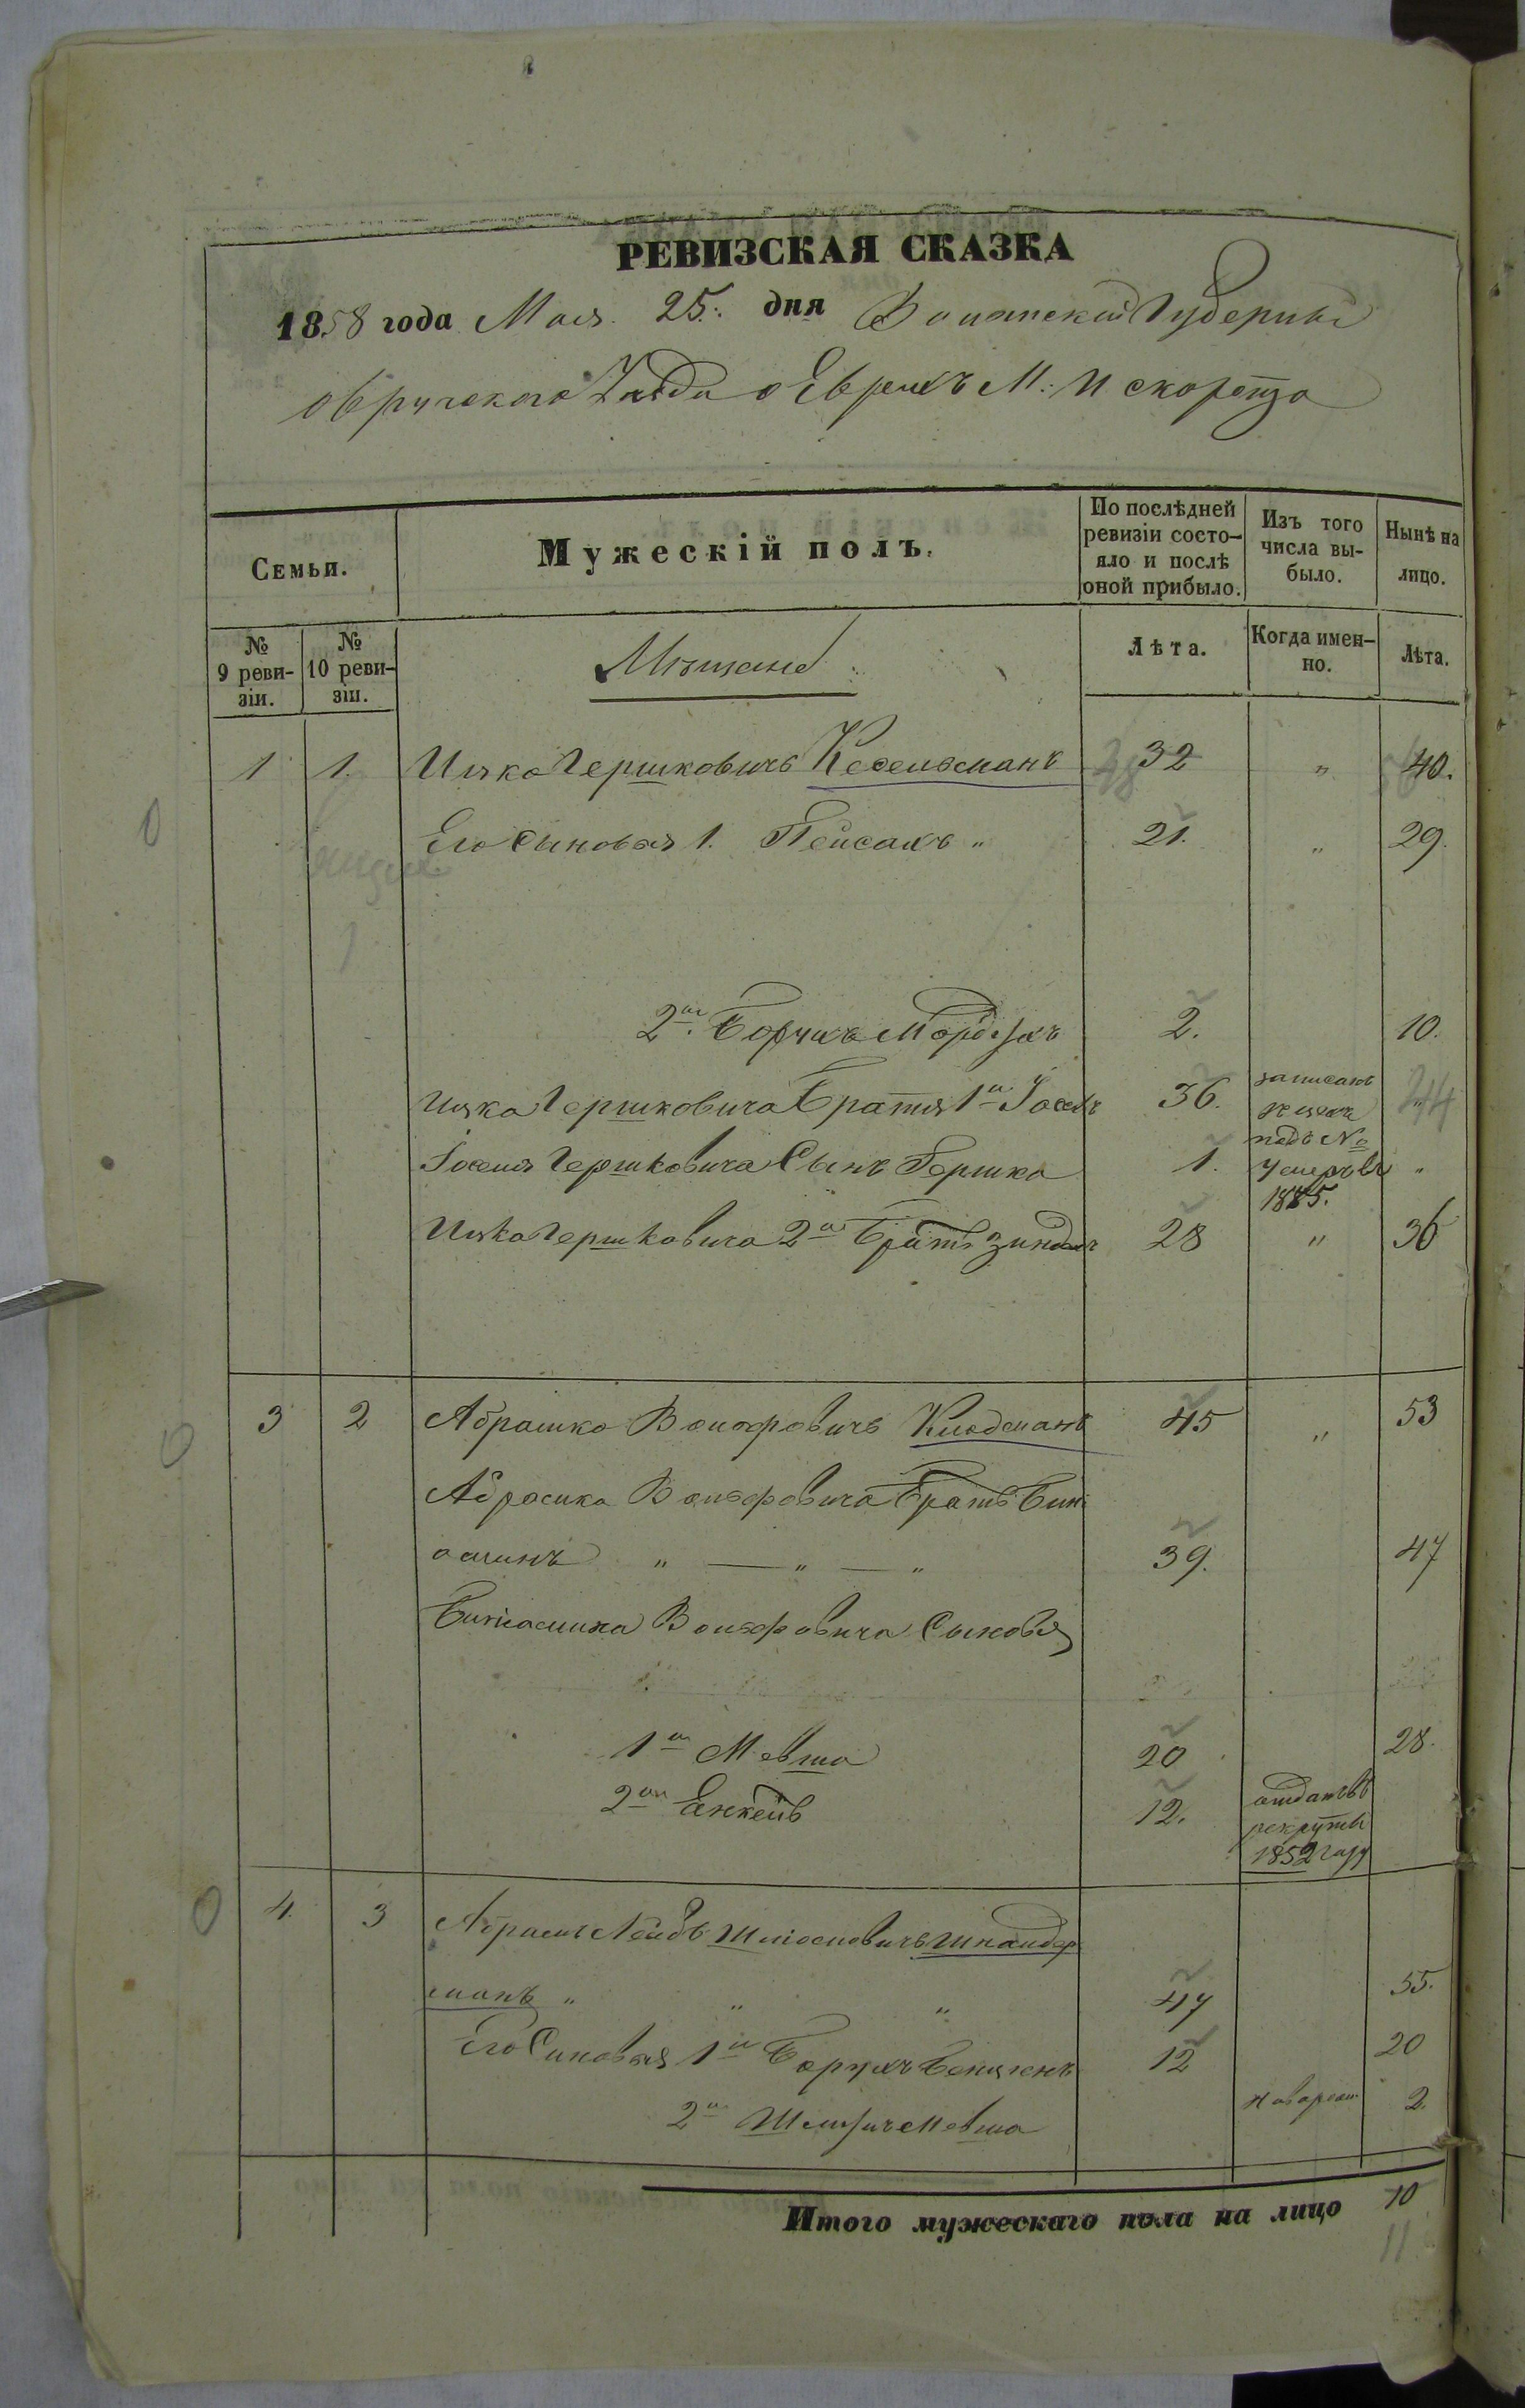 РЕВИЗСКАЯ СКАЗКА
1858 года Мая 25. дня Волынской Губернiи
Овручскаго Уѣзда о Евреяхъ М: Искоростя
Семьи.
Мужескiй полъ.
По послѣдней ревизiи состо-
яло и послѣ
оной прибыло.
Изъ того
числа вы-
было.
Нынѣ на
лицо.
№
9 реви-
зiи.
№
10 реви-
зiи.
Мѣщане
Лѣта.
Когда имен-
но.
Лѣта.
1 1. Ицко Гершковичъ 32 " 40.
Его Сыновья 1. Пейсахъ " 21. " 29.
2й Борухъ Мордухъ 2. 10.
Ицка Гершковича Братья 1й Iосель 36. записанъ
подъ №
Iоселя Гершковича Сынъ Гершко 1. умеръ въ "
1855.
Ицка Гершковича 2й Братъ Зиндель 28 " 36
3 2 Абрашко Вольфовичъ 45 " 53
Абрашка Вольфовича Братъ Бинi
оминъ " — " — " 39. 47
Бинiомина Вольфовича Сыновья
1й Мевша 20 28.
2й Янкель 12. отданъ въ
рекруты
1852 году
4. 3 Абрамъ Лейбъ Шлiомовичъ Шпандер
манъ " " " 47 55.
Его Сыновья 1й Борухъ Бенцiенъ 12 20
2й Мевша новорож. 2.
Итого мужескаго пола на лицо 10
11